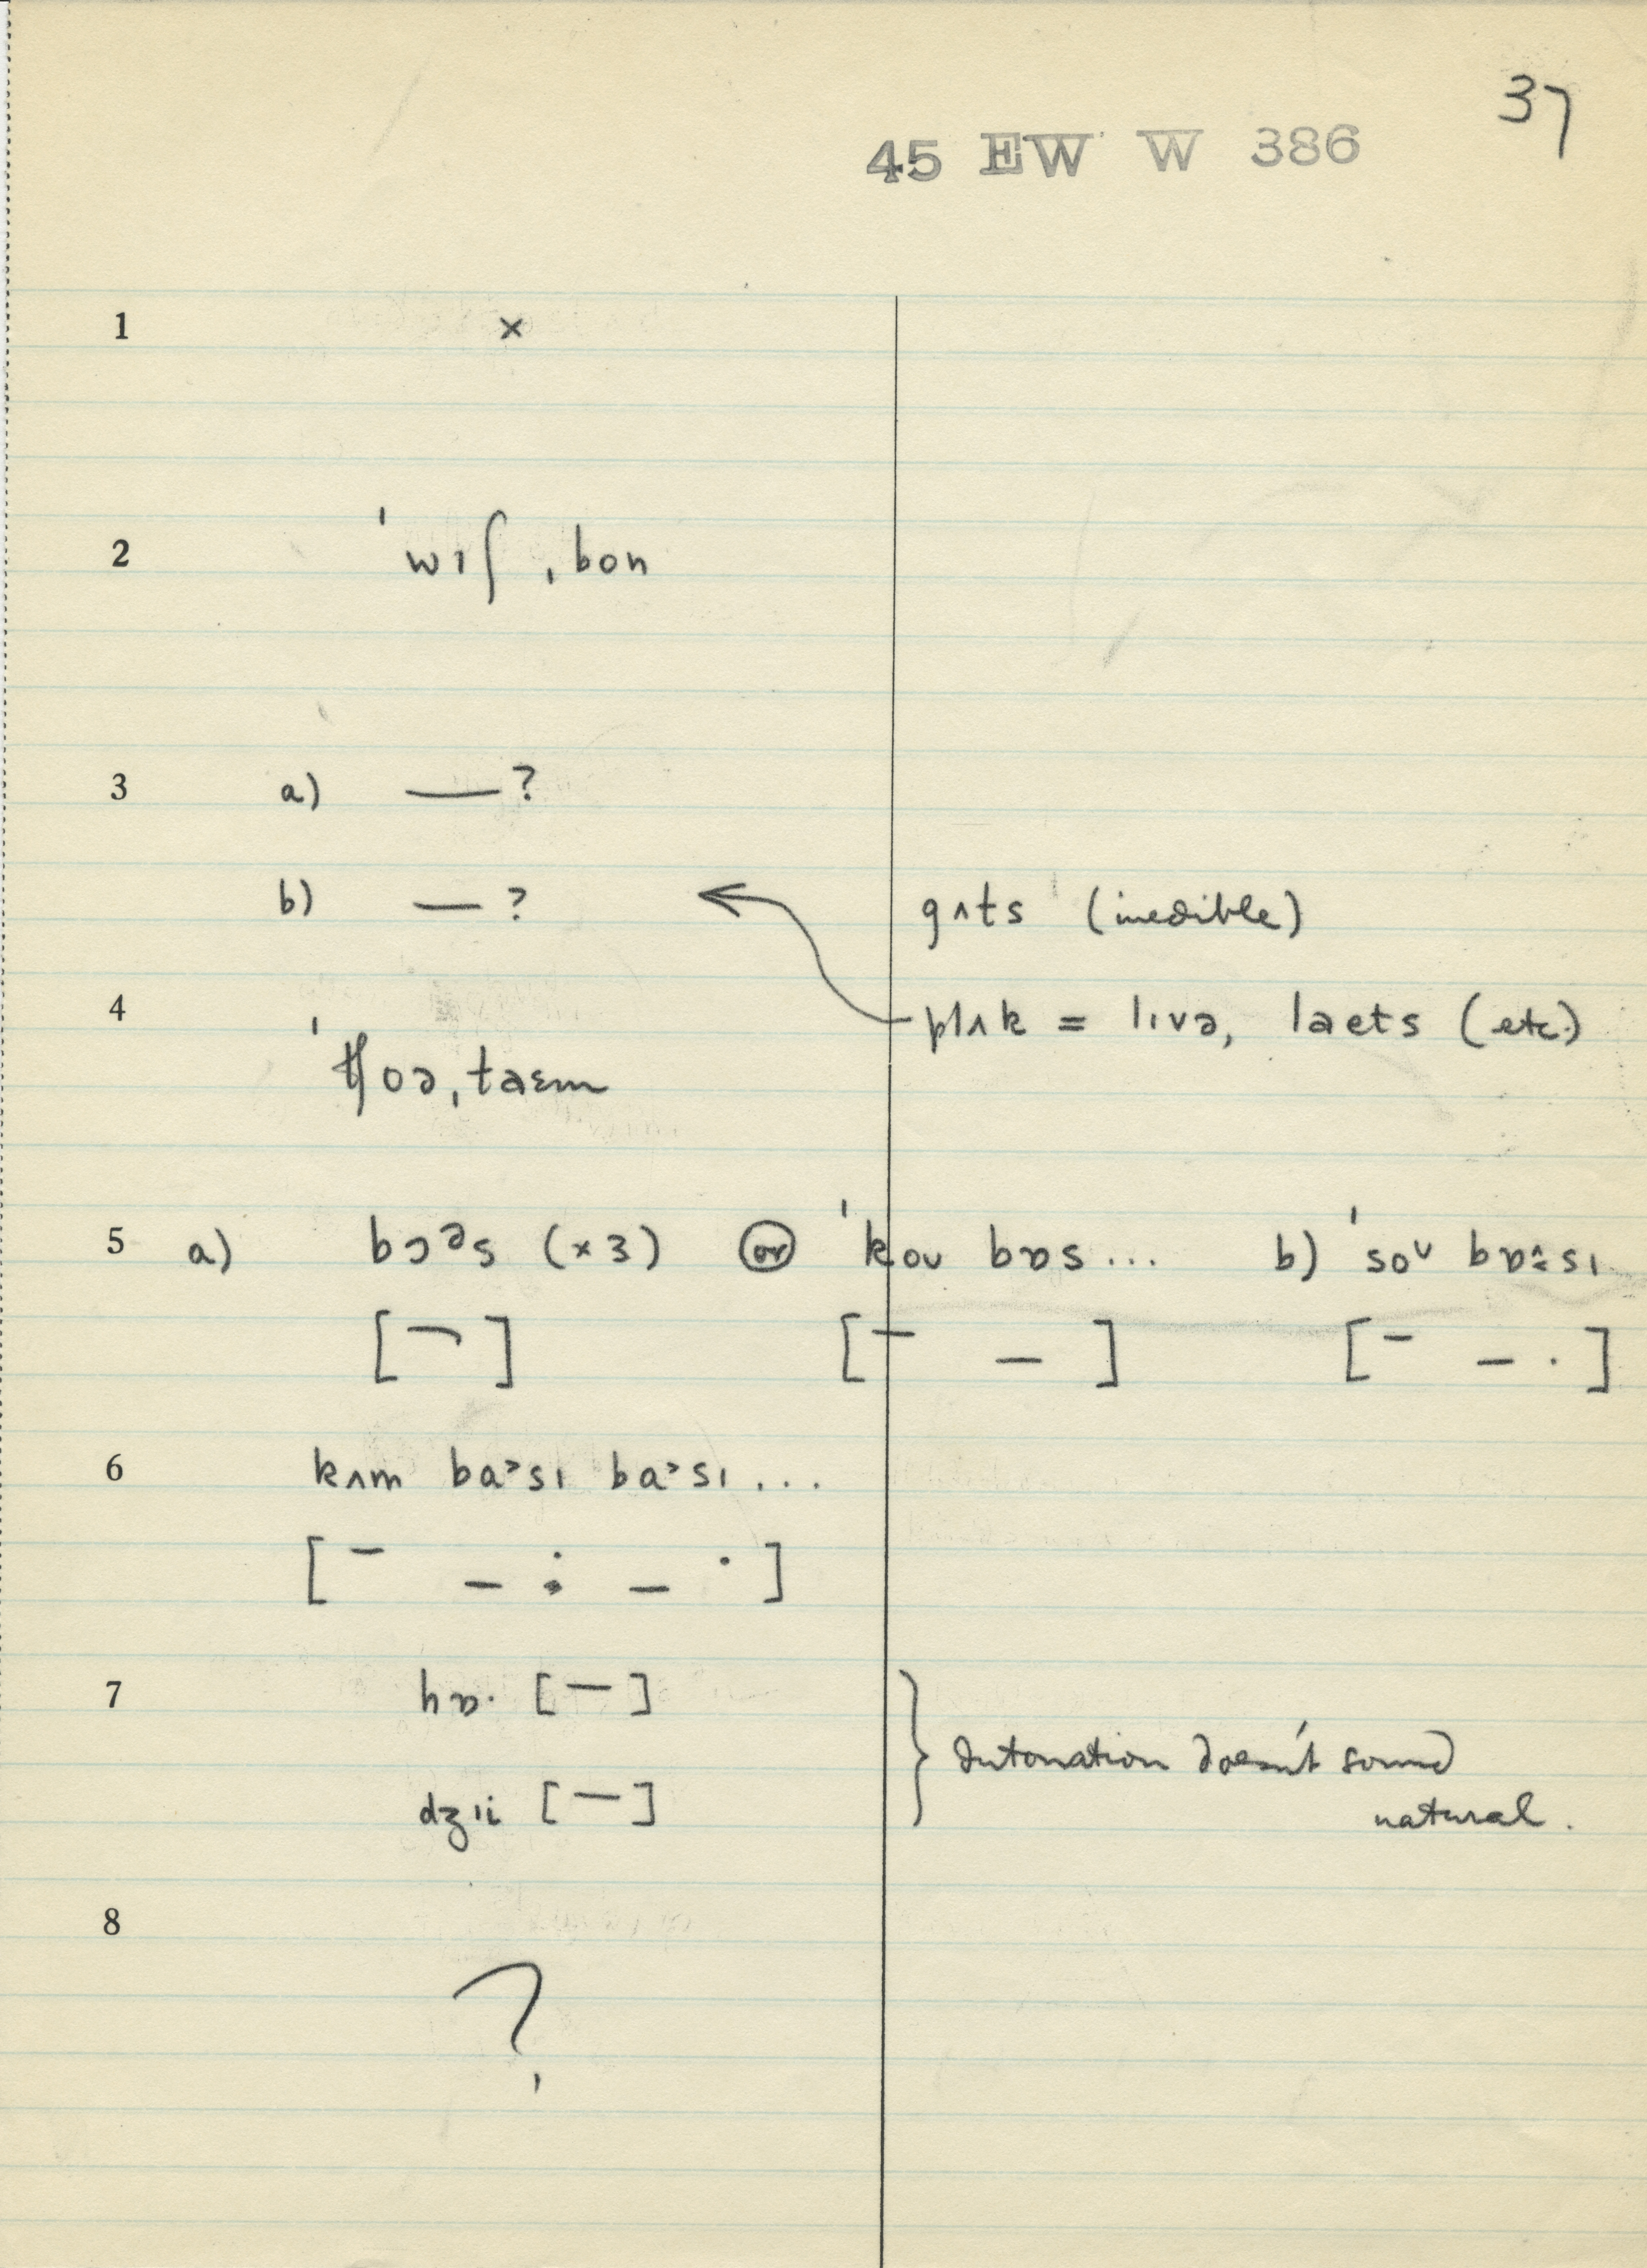 37
45 EW W 386
1 ×
2 ˈwɪʃˌbon
3 a) —?
b) —? gʌts (inedible)
4 plʌk = lɪvə, laets (etc.)
ˈtʃoəˌtaɛm
5 a) bɔᵊs (×3) or ˈkoʊ bɒs... b) ˈsoʊ bɒ:sɪ
[¯] [¯ –] [¯ – ·]
6 kʌm baˀsɪ baˀsɪ...
[¯ – : – ˙]
7 hɒ· [—]
dʒɪi [—]
} Intonation doesn't sound
natural.
8
?